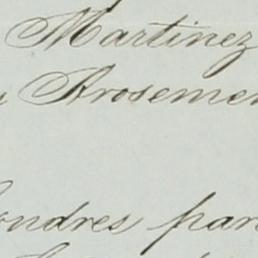 Martinez
Rosemen
ondres par